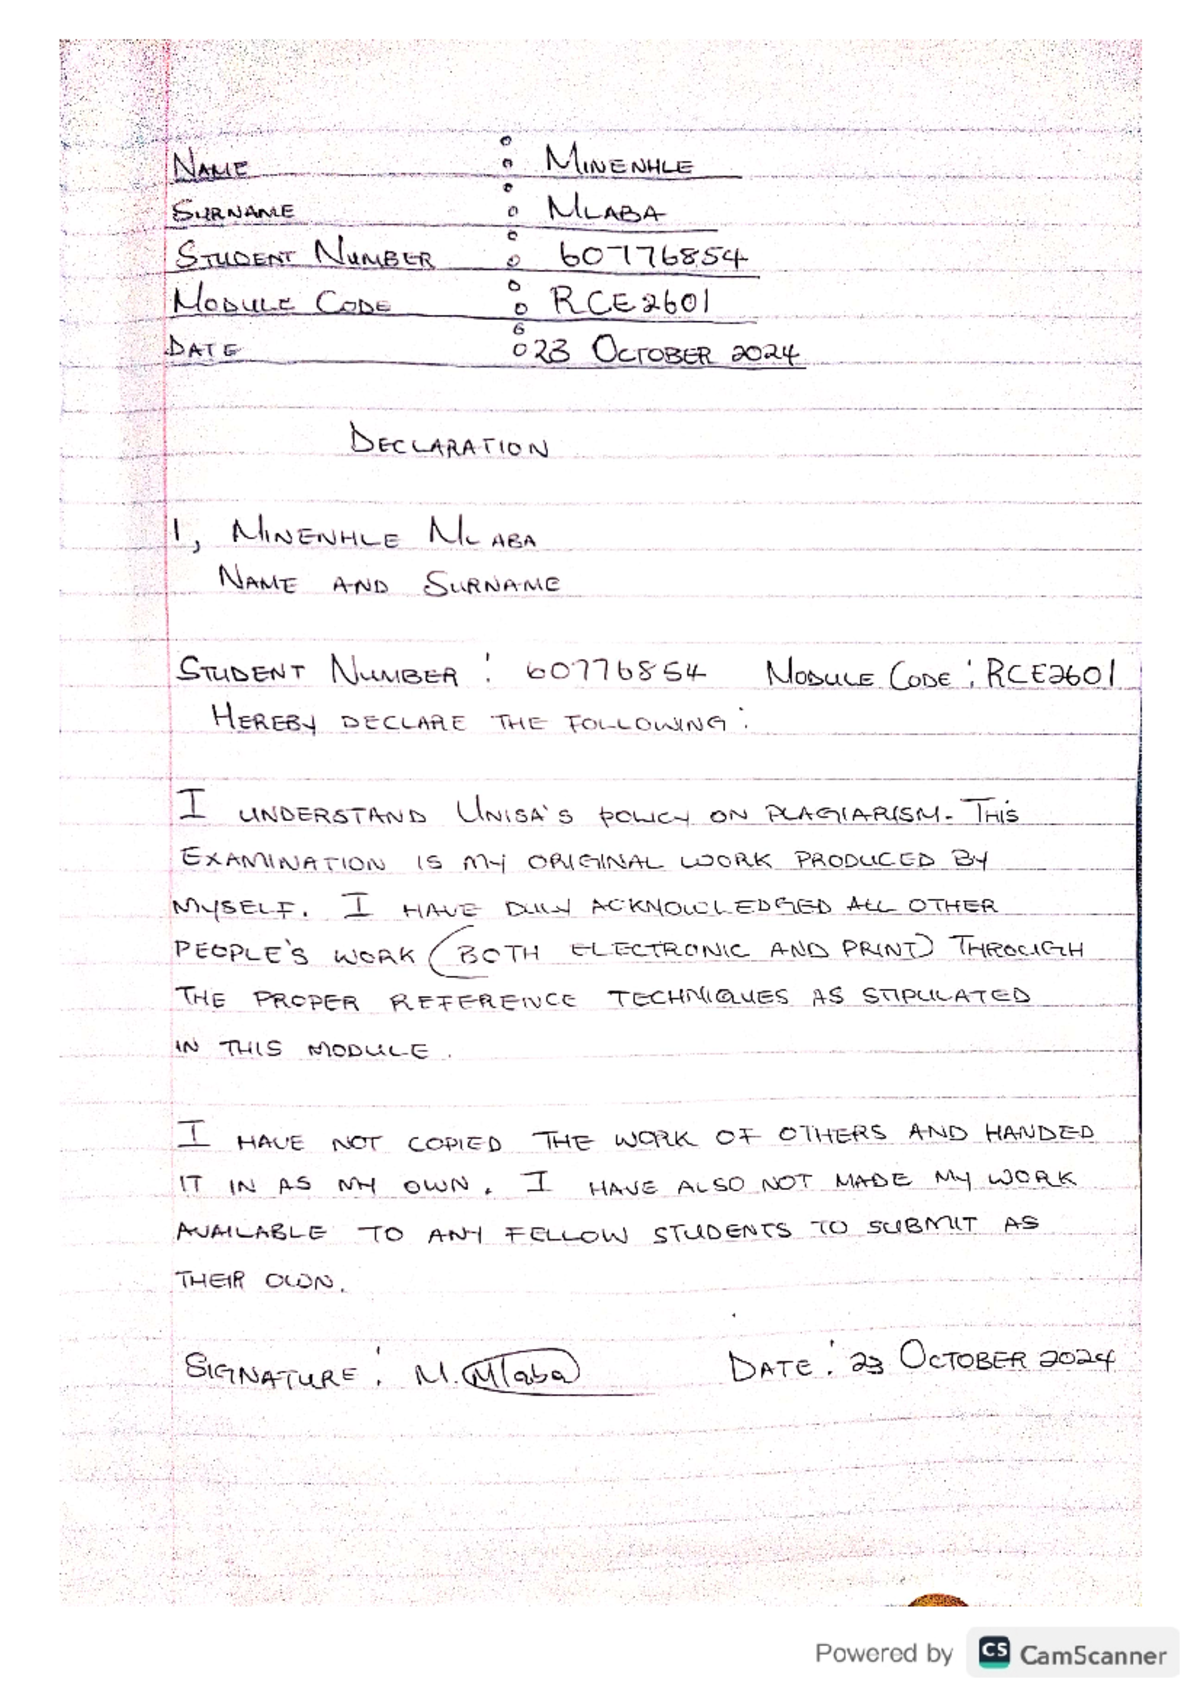 NAME : MINENHLE
SURNAME : MLABA
STUDENT NUMBER : 60776854
MODULE CODE : RCE2601
DATE : 23 OCTOBER 2024
DECLARATION
I, MINENHLE MLABA
NAME AND SURNAME
STUDENT NUMBER : 60776854 MODULE CODE : RCE2601
HEREBY DECLARE THE FOLLOWING :
I UNDERSTAND UNISA'S POLICY ON PLAGIARISM. THIS
EXAMINATION IS MY ORIGINAL WORK PRODUCED BY
MYSELF. I HAVE DULY ACKNOWLEDGED ALL OTHER
PEOPLE'S WORK (BOTH ELECTRONIC AND PRINT) THROUGH
THE PROPER REFERENCE TECHNIQUES AS STIPULATED
IN THIS MODULE.
I HAVE NOT COPIED THE WORK OF OTHERS AND HANDED
IT IN AS MY OWN. I HAVE ALSO NOT MADE MY WORK
AVAILABLE TO ANY FELLOW STUDENTS TO SUBMIT AS
THEIR OWN.
SIGNATURE : M. Mlaba DATE : 23 OCTOBER 2024
Powered by CS CamScanner